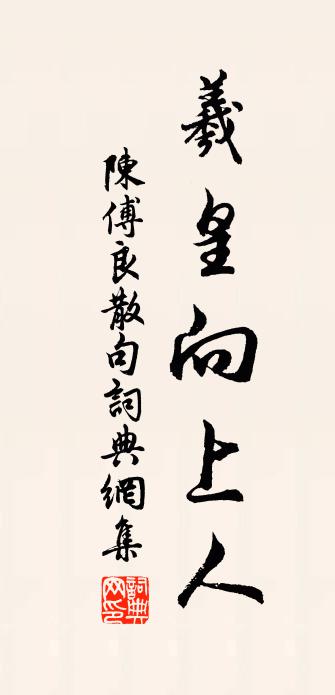 羲皇向上人
陳傅良散句詞典網集
詞典网印